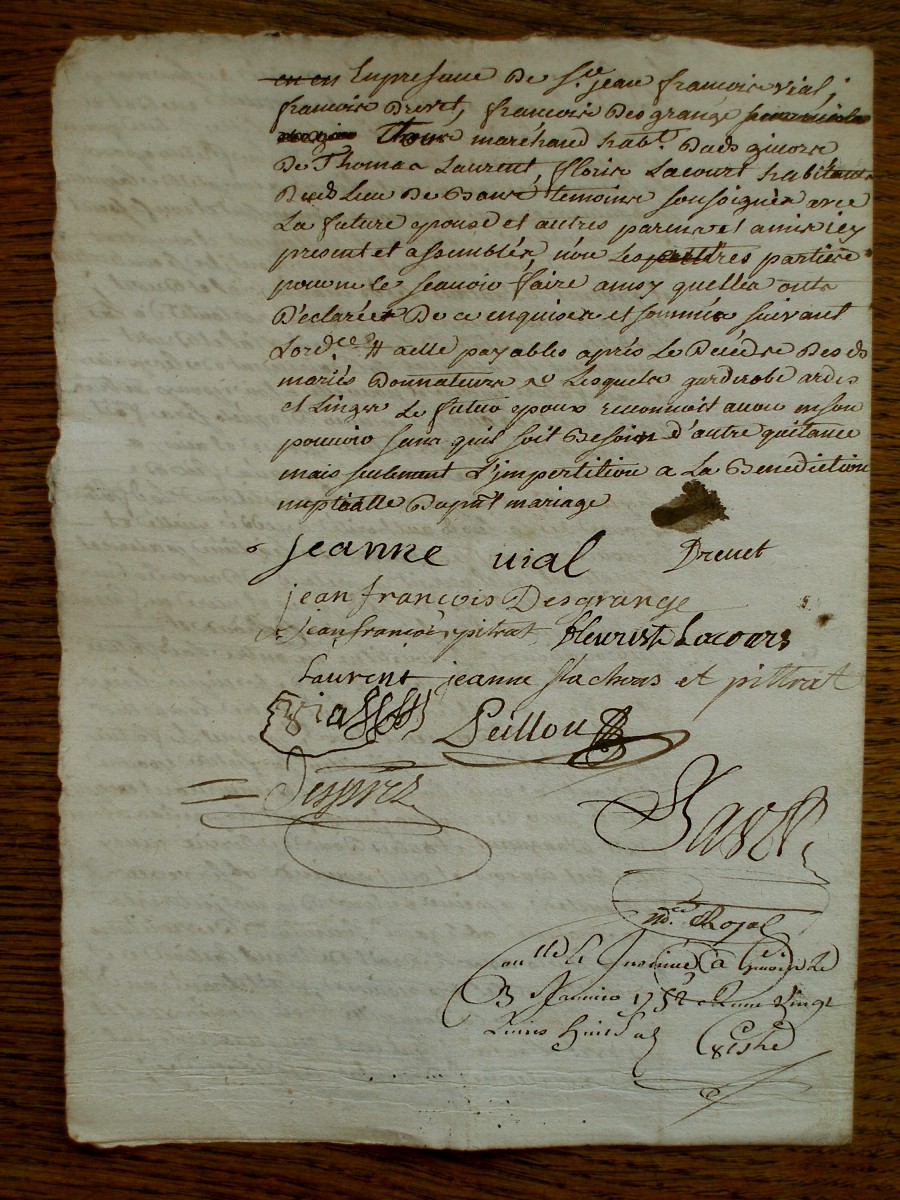 en en Enpresence De Sr. jean francois vial,
francois Drevet, francois Desgrange
Thoune maréchaud habt. Dud givors
De Thomas Laurent, floris Lacourt habitants
Dud Lieu De Bans temoins sousoignés avec
La future epouse et autres parens et amis icy
present et assemblés, non Les partiers
pour ne le scavoir faire ainsy quelles onts
D'éclarées De ce enquises et sommés suivant
Lordce a elle payables aprés Le Décéds Desds
mariés Donnateurs Lesquels garderobe ardes
et Linges Le futur epoux reconnoit avoir en son
pouvoir sans quil soit Besoin d'autre quitance
mais seulement L'impertition a La Benediction
nuptialle Du pnt mariage
jeanne vial Drevet
jean françois Desgrange
jean francois pitrat fleuriste Lacours
Laurent jeanne et pittrat
vial
Peillou
Desprez

Royal
Insinué à Givors Le
3 Janvier 1752 Vingt
Livres huit